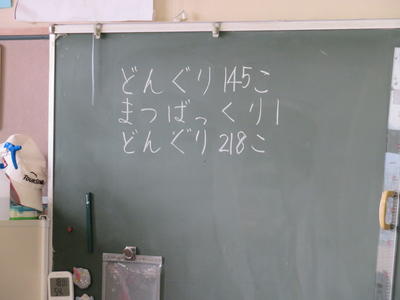 どんぐり145こ
まつばっくり1
どんぐり218こ